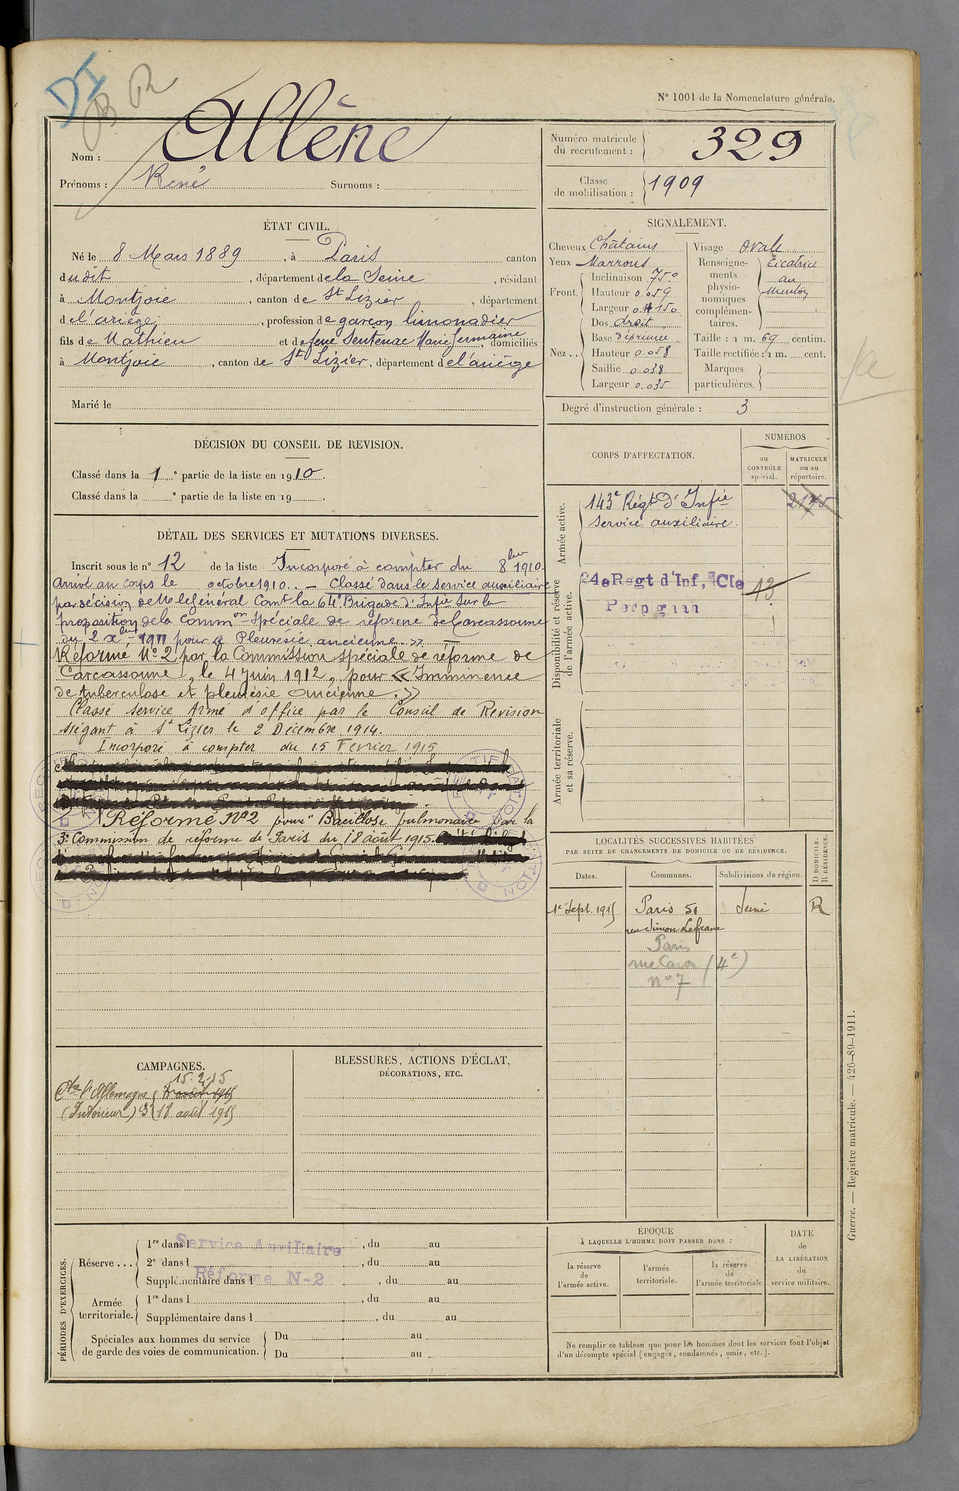 DI
BR
N° 1001 de la Nomenclature générale.
Nom : Allène
Prénoms : René Surnoms :
Numéro matricule du recrutement : 329
Classe de mobilisation : 1909
ÉTAT CIVIL.
Né le 8 Mars 1889, à Paris canton
dudit, département de la Seine, résidant
à Montjoie, canton de St Lizier, département
de l'ariège, profession de garçon limonadier
fils de Mathieu et de feue Sentenac Marie Germaine, domiciliés
à Montjoie, canton de St Lizier, département de l'ariège
Marié le
SIGNALEMENT.
Cheveux Châtains
Yeux Marrons
Front. Inclinaison
Hauteur 0.059
Largeur
Nez... Dos droit
Base
Hauteur 0.058
Saillie 0.028
Largeur 0.035
Visage ovale
Renseignements physionomiques complémentaires. Cicatrice au Menton
Taille : 1 m. 69 centim.
Taille rectifiée : 1 m. cent.
Marques particulières.
Degré d'instruction générale : 3
DÉCISION DU CONSEIL DE REVISION.
Classé dans la 1e partie de la liste en 1910.
Classé dans la e partie de la liste en 19
DÉTAIL DES SERVICES ET MUTATIONS DIVERSES.
Inscrit sous le n° 12 de la liste Incorporé à compter du 8bre 1910.
Arrivé au corps le octobre 1910. — Classé dans le service auxiliaire
par décision de M le Général Comt la 64e Brigade d'Infie sur la
proposition de la Common Spéciale de réforme de Carcassonne
du 2 Xbre 1911 pour « Pleuresie ancienne. »
Réformé N° 2 par la Commission spéciale de réforme de
Carcassonne, le 4 juin 1912, pour « Imminence
de tuberculose et pleuresie ancienne. »
Classé Service Armé d'office par le Conseil de Revision
siégant à St Lizier le 2 Décembre 1914.
Incorporé à compter du 15 Fevrier 1915
Réformé N°2 pour " Bacillose pulmonaire par la
3e Commission de réforme de Paris du 18 août 1915.
CORPS D'AFFECTATION.
NUMÉROS
au CONTRÔLE spécial.
MATRICULE ou au répertoire.
Armée active.
143e Régt d'Infie
Service auxiliaire.
2175
Disponibilité et réserve de l'armée active.
24e Regt d'Inf, Cie
Perpignan
13
Armée territoriale et sa réserve.
LOCALITÉS SUCCESSIVES HABITÉES
PAR SUITE DE CHANGEMENTS DE DOMICILE OU DE RÉSIDENCE.
Dates. Communes. Subdivisions de région. D domicile. R résidence.
1er Sept. 1915 Paris 51 Seine R
rue Simon Lefranc
Paris
rue Caron (4e)
n° 7
CAMPAGNES.
15.2.15
Ctre l'Allemagne
(Intérieur) 18 août 1915
BLESSURES, ACTIONS D'ÉCLAT,
DÉCORATIONS, ETC.
PÉRIODES D'EXERCICES.
Réserve...
1re dans l , du au
2e dans l , du au
Supplémentaire dans l , du au
Service Auxiliaire
Réforme N-2
Armée territoriale.
1re dans l , du au
Supplémentaire dans l , du au
Spéciales aux hommes du service de garde des voies de communication.
Du au
Du au
ÉPOQUE
À LAQUELLE L'HOMME DOIT PASSER DANS :
la réserve de l'armée active.
l'armée territoriale.
la réserve de l'armée territoriale
DATE de LA LIBÉRATION du service militaire.
Ne remplir ce tableau que pour les hommes dont les services font l'objet
d'un décompte spécial (engagés, condamnés, omis, etc.).
Guerre. — Registre matricule. — 426-89-1911.